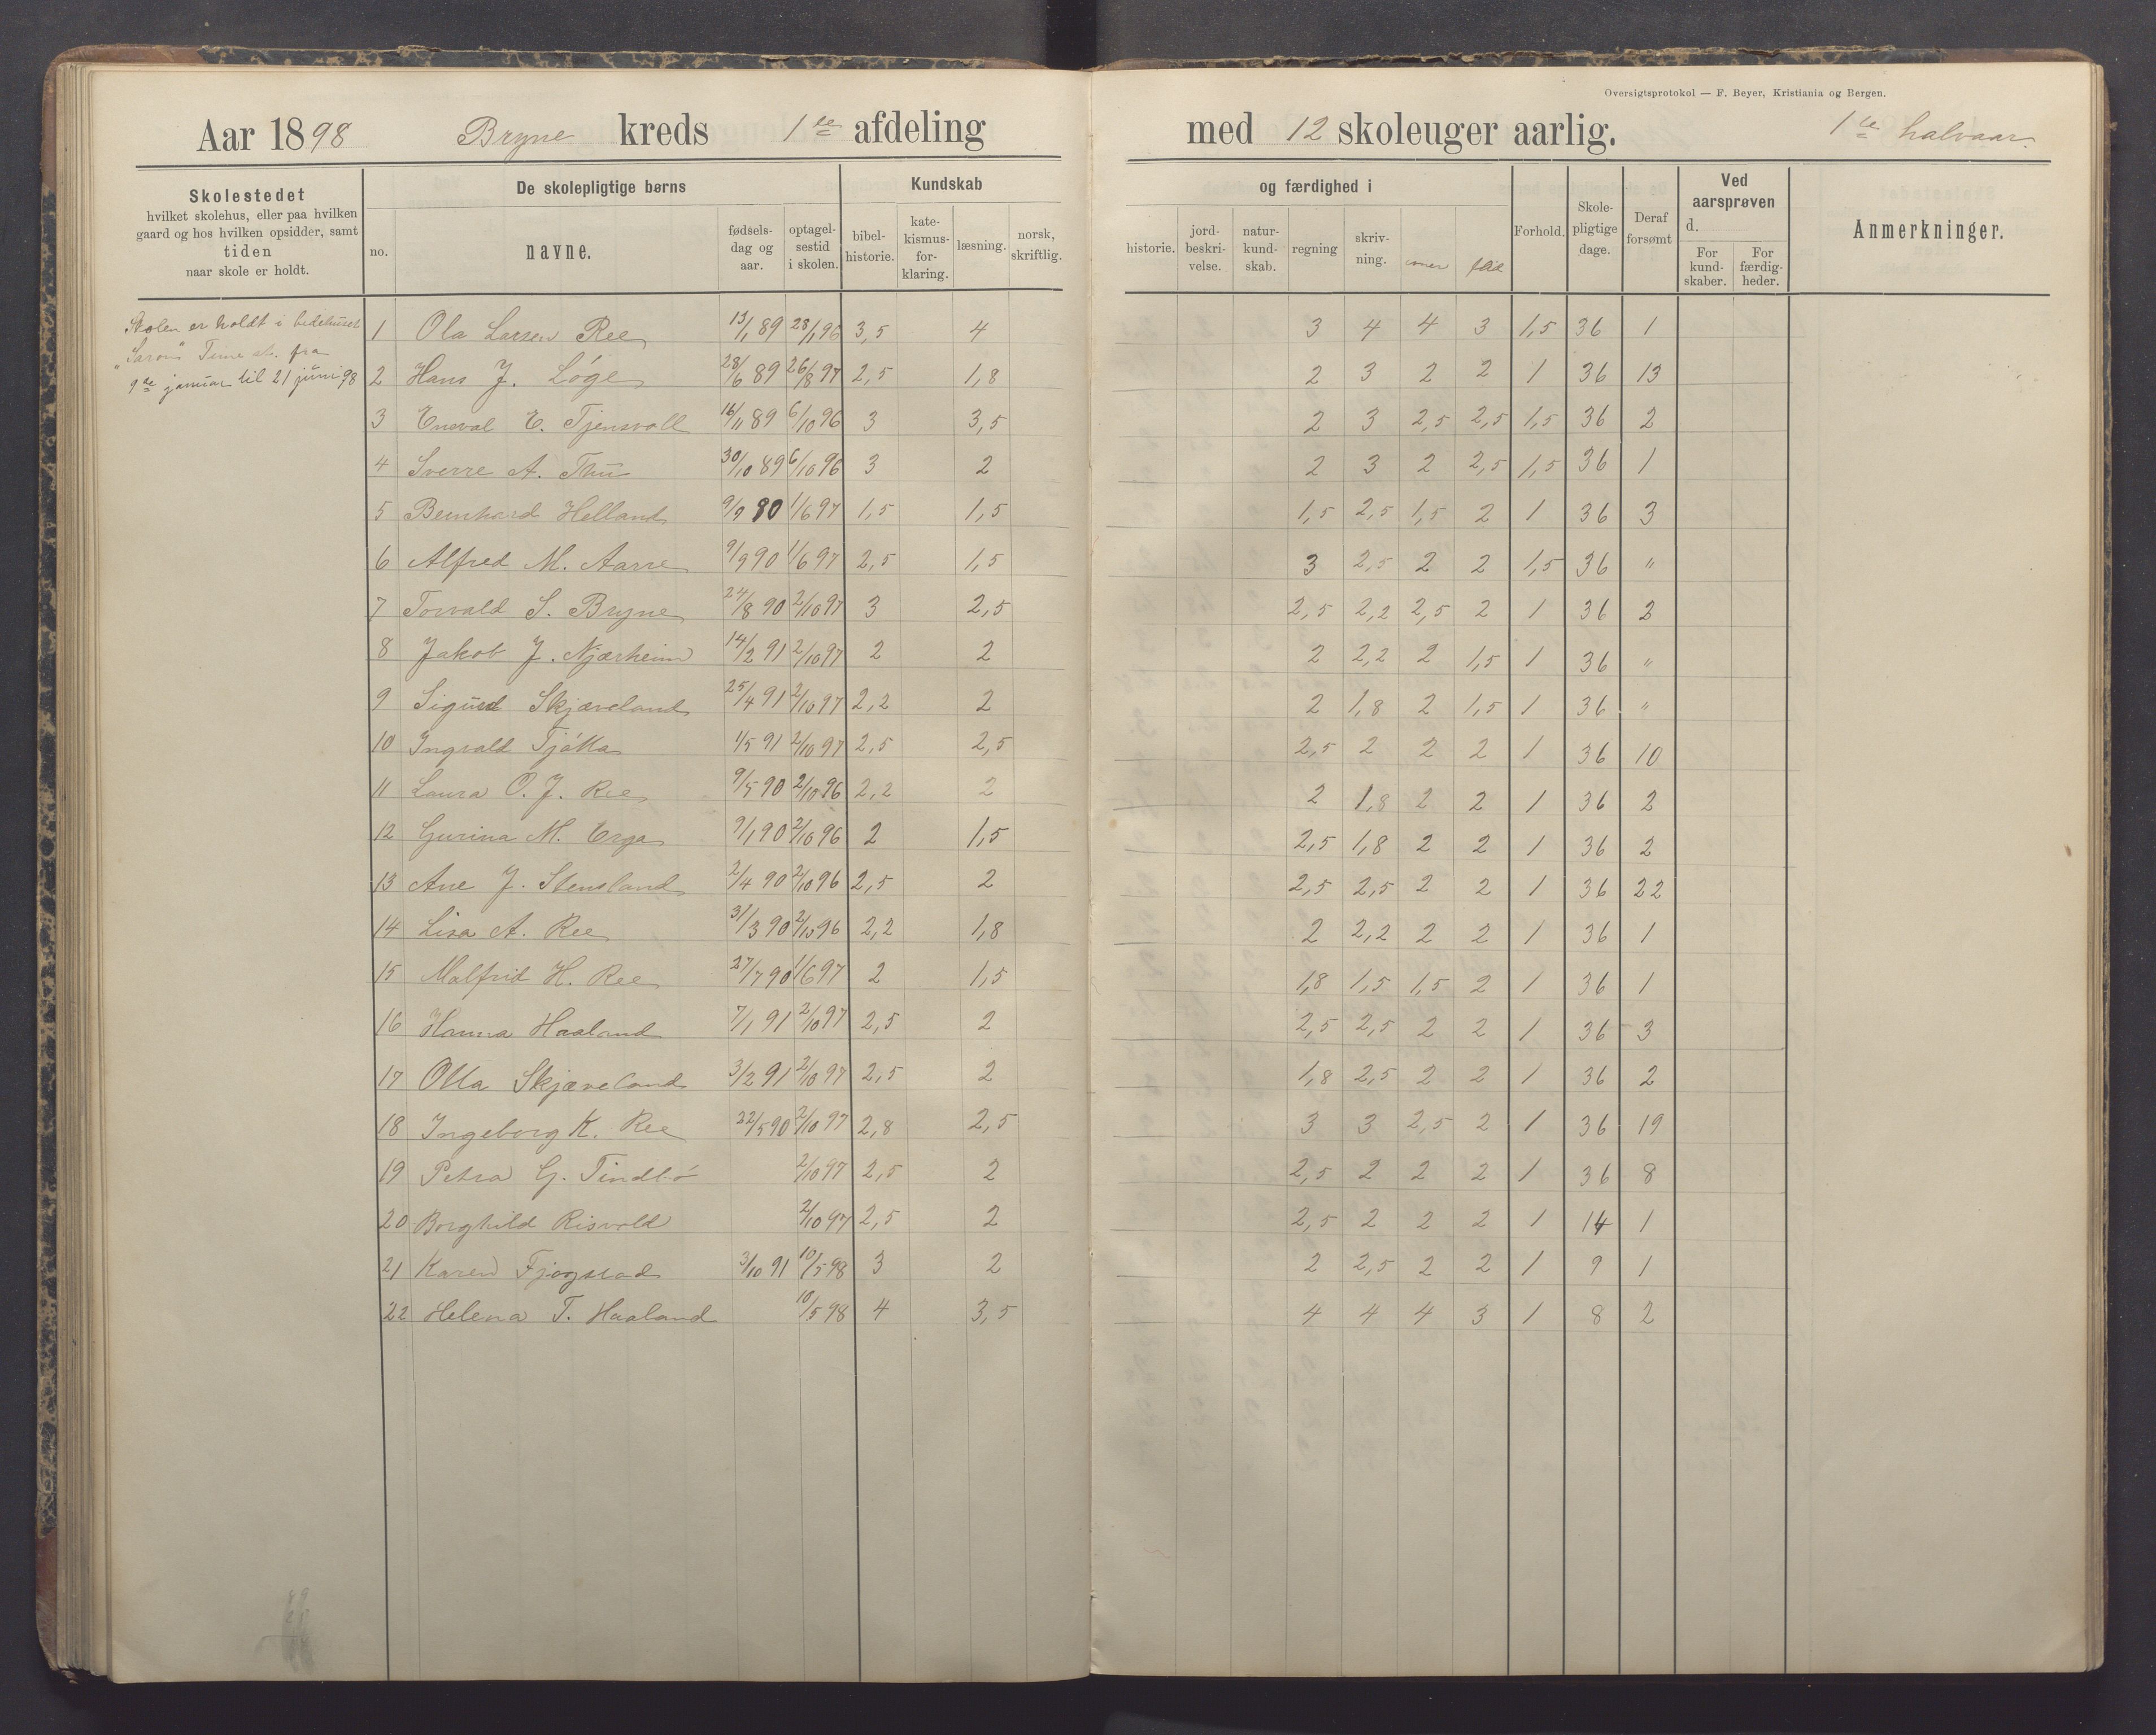 Oversigtsprotokol — F. Beyer, Kristiania og Bergen.
Aar 1898 Bryne kreds 1ste afdeling med 12 skoleuger aarlig. 1ste halvaar.
Skolestedet
hvilket skolehus, eller paa hvilken
gaard og hos hvilken opsidder, samt
tiden
naar skole er holdt.
De skolepligtige børns
no. navne. fødsels-dag og aar. optagel-sestid i skolen.
Kundskab og færdighed i
bibel-historie. kate-kismus-for-klaring. læsning. norsk, skriftlig. historie. jord-beskri-velse. natur-kund-skab. regning skriv-ning. flid Forhold. Skole-pligtige dage. Deraf forsømt
Ved aarsprøven d.
For kund-skaber. For færdig-heder.
Anmerkninger.
Skolen er holdt i bedehuset
"Saron" Time st. fra
9de januar til 21 juni 98
1 Ola Larsen Ree 13/1 89 28/1 96 3,5 4 3 4 4 3 1,5 36 1
2 Hans J. Löge 28/6 89 26/8 97 2,5 1,8 2 3 2 2 1 36 13
3 Eneval E. Tjensvoll 16/11 89 6/10 96 3 3,5 2 3 2,5 2,5 1,5 36 2
4 Sverre A. Thu 30/10 89 6/10 96 3 2 2 3 2 2,5 1,5 36 1
5 Bernhard Helland 9/9 90 1/6 97 1,5 1,5 1,5 2,5 1,5 2 1 36 3
6 Alfred M. Aarre 9/9 90 1/6 97 2,5 1,5 3 2,5 2 2 1,5 36 "
7 Torvald S. Bryne 24/8 90 2/10 97 3 2,5 2,5 2,2 2,5 2 1 36 2
8 Jakob J. Njærheim 14/2 91 2/10 97 2 2 2 2,2 2 1,5 1 36 "
9 Sigurd Skjæveland 25/4 91 2/10 97 2,2 2 2 1,8 2 1,5 1 36 "
10 Ingvald Tjötta 1/5 91 2/10 97 2,5 2,5 2,5 2 2 2 1 36 10
11 Laura O. J. Ree 9/5 90 2/10 96 2,2 2 2 1,8 2 2 1 36 2
12 Gurina M. Erga 9/1 90 2/10 96 2 1,5 2,5 1,8 2 2 1 36 2
13 Ane J. Stensland 2/4 90 2/10 96 2,5 2 2,5 2,5 2 2 1 36 22
14 Lisa A. Ree 31/3 90 2/10 96 2,2 1,8 2 2,2 2 2 1 36 1
15 Malfrid H. Ree 27/7 90 1/6 97 2 1,5 1,8 1,5 1,5 2 1 36 1
16 Hanna Haaland 7/1 91 2/10 97 2,5 2 2,5 2,5 2 2 1 36 3
17 Olla Skjæveland 3/2 91 2/10 97 2,5 2 1,8 2,5 2 2 1 36 2
18 Ingeborg K. Ree 22/5 90 2/10 97 2,8 2,5 3 3 2,5 2 1 36 19
19 Petra G. Tindbö 2/10 97 2,5 2 2,5 2 2 2 1 36 8
20 Borghild Risvold 2/10 97 2,5 2 2,5 2 2 2 1 14 1
21 Karen Fjogstad 3/10 91 10/5 98 3 2 2 2,5 2 2 1 9 1
22 Helena T. Haaland 10/5 98 4 3,5 4 4 4 3 1 8 2